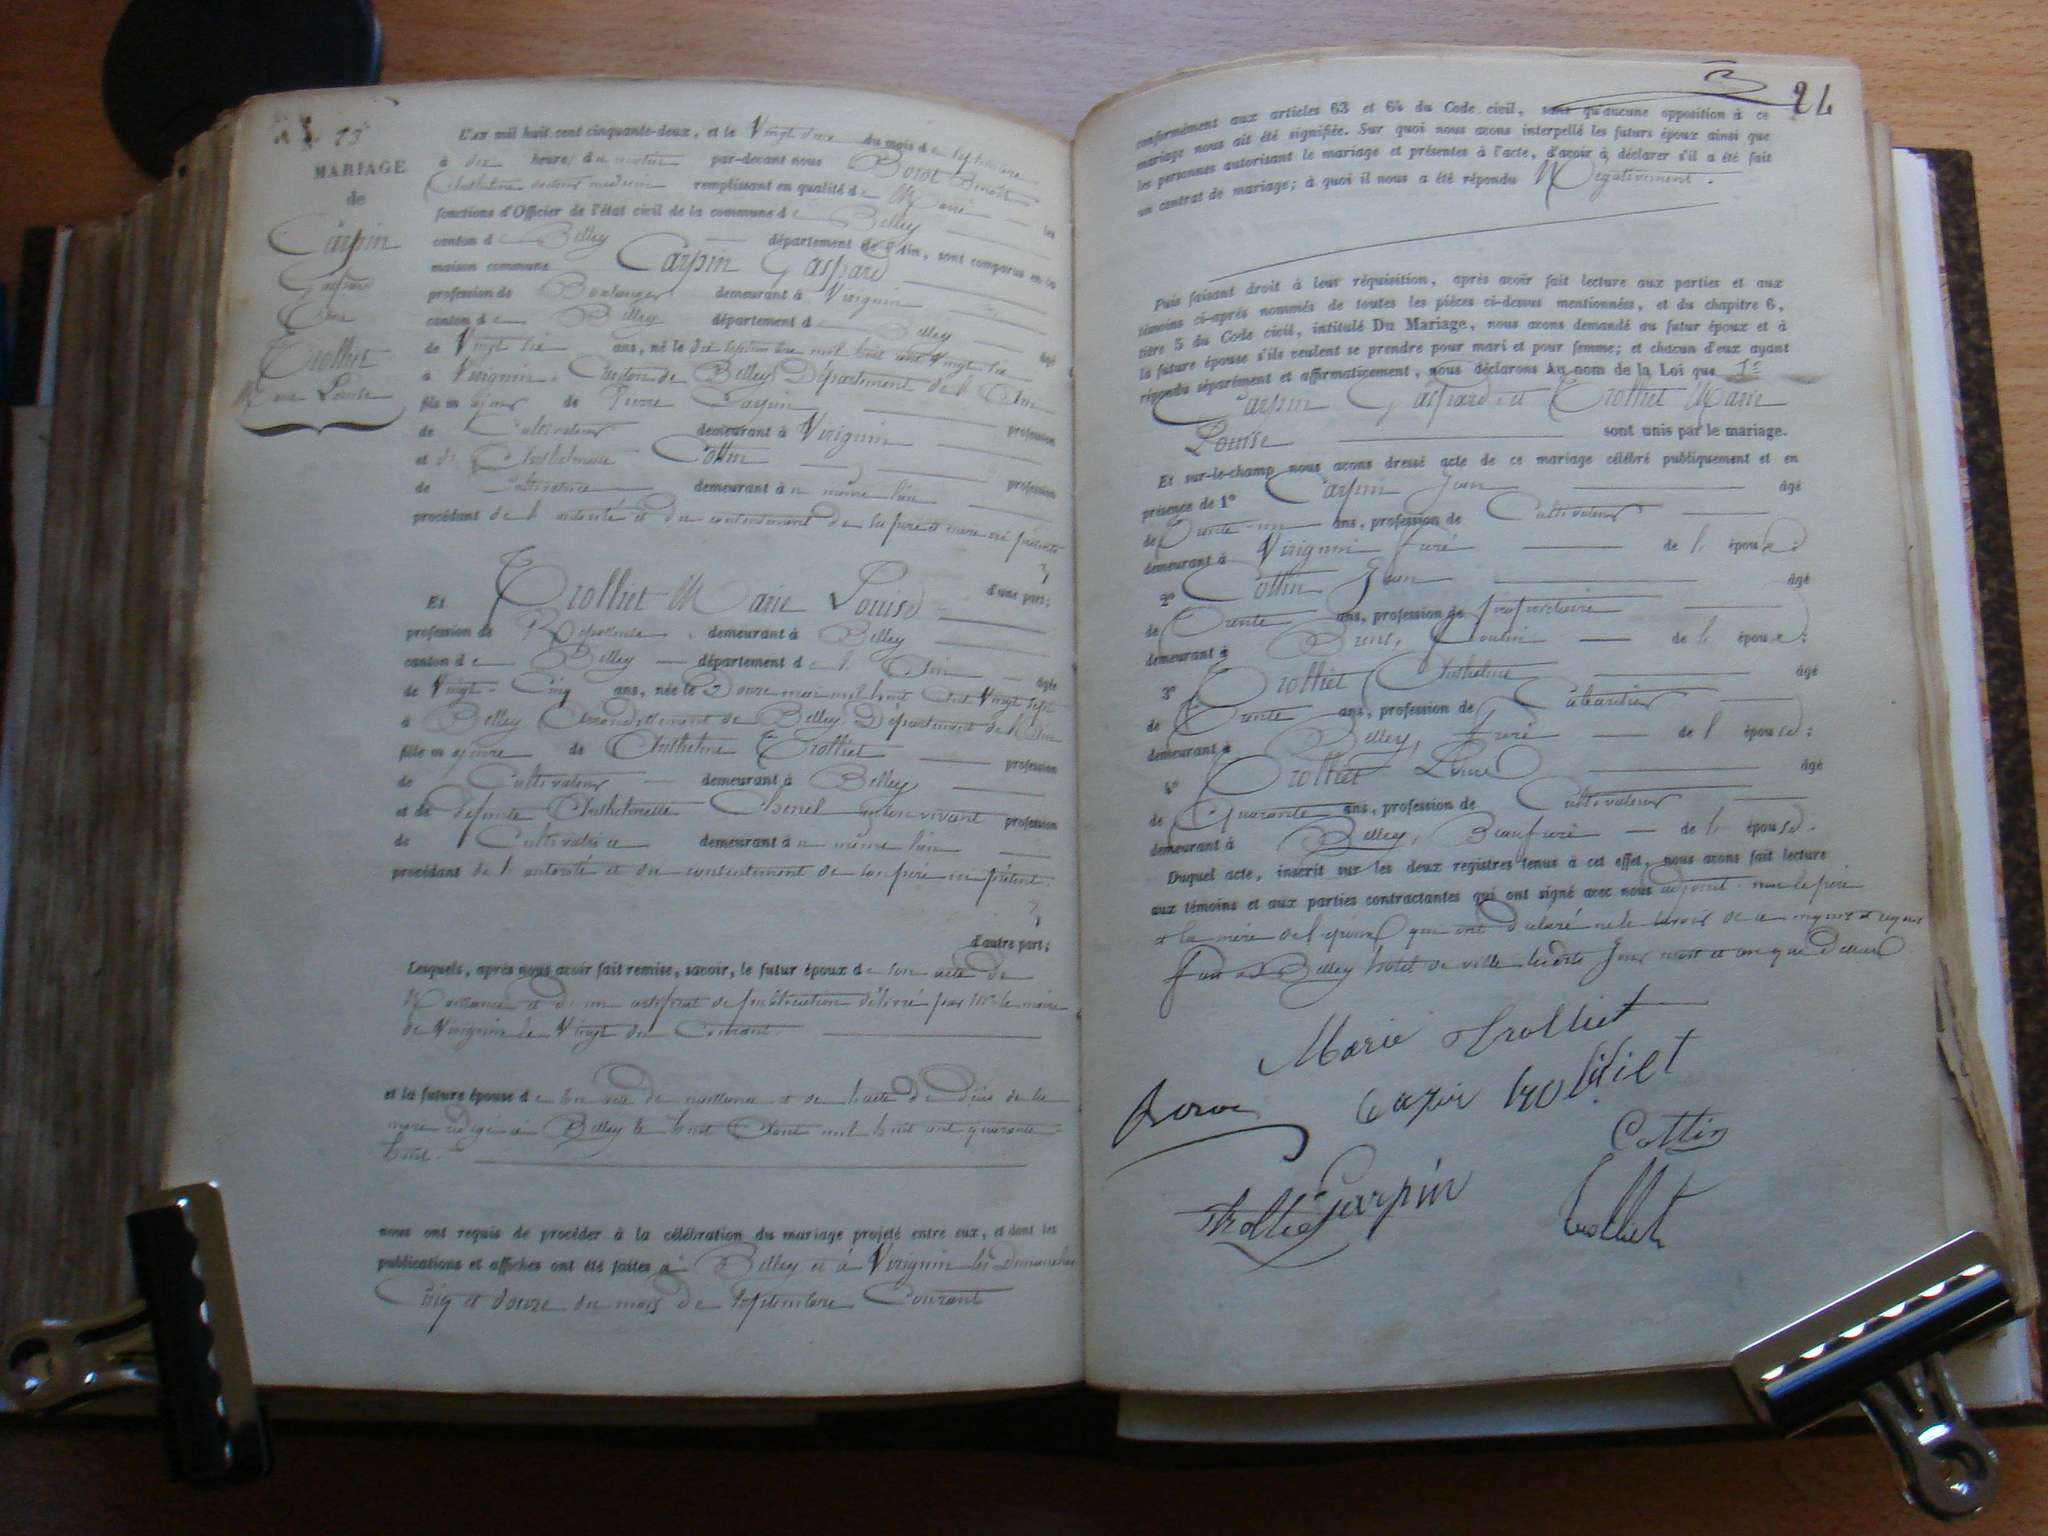 73
MARIAGE
de
Carpin
Gaspard
Et
Trolliet
Marie Louise
L'an mil huit cent cinquante-deux, et le Vingt du mois de Septembre
à dix heures du matin par-devant nous
docteur medecin remplissant en qualité de Maire les
fonctions d'Officier de l'état civil de la commune de Belley
canton de Belley département de l'Ain, sont comparus en la
maison commune Carpin Gaspard
profession de Boulanger demeurant à Virignin
canton de Belley département de Belley âgé
de Vingt six ans, né le septembre mil huit cent vingt six
à Virignin, Canton de Belley Département de l'Ain
fils majeur de Pierre Carpin profession
de Cultivateur demeurant à Virignin
et de Anthelmette Cottin profession
de Cultivatrice demeurant au même lieu
procédant de l'autorité et du consentement de ses père et mere ici présents
d'une part;
Et Trolliet Marie Louise
profession de demeurant à Belley
canton de Belley département de l'Ain âgée
de Vingt-Cinq ans, née le Douze mai mil huit Cent Vingt sept
à Belley Arrondissement de Belley Département de l'Ain
fille majeure de Anthelme Trolliet profession
de Cultivateur demeurant à Belley
et de defunte Anthelmette Chenel en son vivant profession
de Cultivatrice demeurant au même lieu
procédant de l'autorité et du consentement de son père ici présent.
d'autre part;
Lesquels, après nous avoir fait remise, savoir, le futur époux de son acte de
Naissance et d'un certificat de publication délivré par Mr le maire
de Virignin le Vingt du Courant.
et la future épouse de son acte de naissance et de l'acte de décès de sa
mere rédigé à Belley le huit Aout mil huit cent quarante
huit.
nous ont requis de procéder à la célébration du mariage projeté entre eux, et dont les
publications et affiches ont été faites à Belley et à Virignin les Dimanches
Cinq et douze du mois de septembre Courant
24
conformément aux articles 63 et 64 du Code civil, sans qu'aucune opposition à ce
mariage nous ait été signifiée. Sur quoi nous avons interpellé les futurs époux ainsi que
les personnes autorisant le mariage et présentes à l'acte, d'avoir à déclarer s'il a été fait
un contrat de mariage; à quoi il nous a été répondu Negativement.
Puis faisant droit à leur réquisition, après avoir fait lecture aux parties et aux
témoins ci-après nommés de toutes les pièces ci-dessus mentionnées, et du chapitre 6,
titre 5 du Code civil, intitulé Du Mariage, nous avons demandé au futur époux et à
la future épouse s'ils veulent se prendre pour mari et pour femme; et chacun d'eux ayant
répondu séparément et affirmativement, nous déclarons Au nom de la Loi que
Carpin Gaspard et Trolliet Marie
Louise sont unis par le mariage.
Et sur-le-champ nous avons dressé acte de ce mariage célébré publiquement et en
présence de 1° Carpin Jean âgé
de Trente-un ans, profession de Cultivateur
demeurant à Virignin frère de l'époux;
2° Cottin Jean âgé
de Trente ans, profession de propriétaire
demeurant à Brens, Cousin de l'époux;
3° Trolliet Anthelme âgé
de Trente ans, profession de Cabaretier
demeurant à Belley, frère de l'épouse;
4° Trolliet âgé
de Quarante ans, profession de Cultivateur
demeurant à Belley, Beaufrère de l'épouse.
Duquel acte, inscrit sur les deux registres tenus à cet effet, nous avons fait lecture
aux témoins et aux parties contractantes qui ont signé avec nous non le père
et la mère de l'époux qui ont déclaré ne le savoir de ce enquis et requis
Fait à Belley hotel de ville lesdits Jour mois et an que dessus
Marie Trolliet
Carpin Trolliet
Cottin
Trolliet Carpin
Trolliet